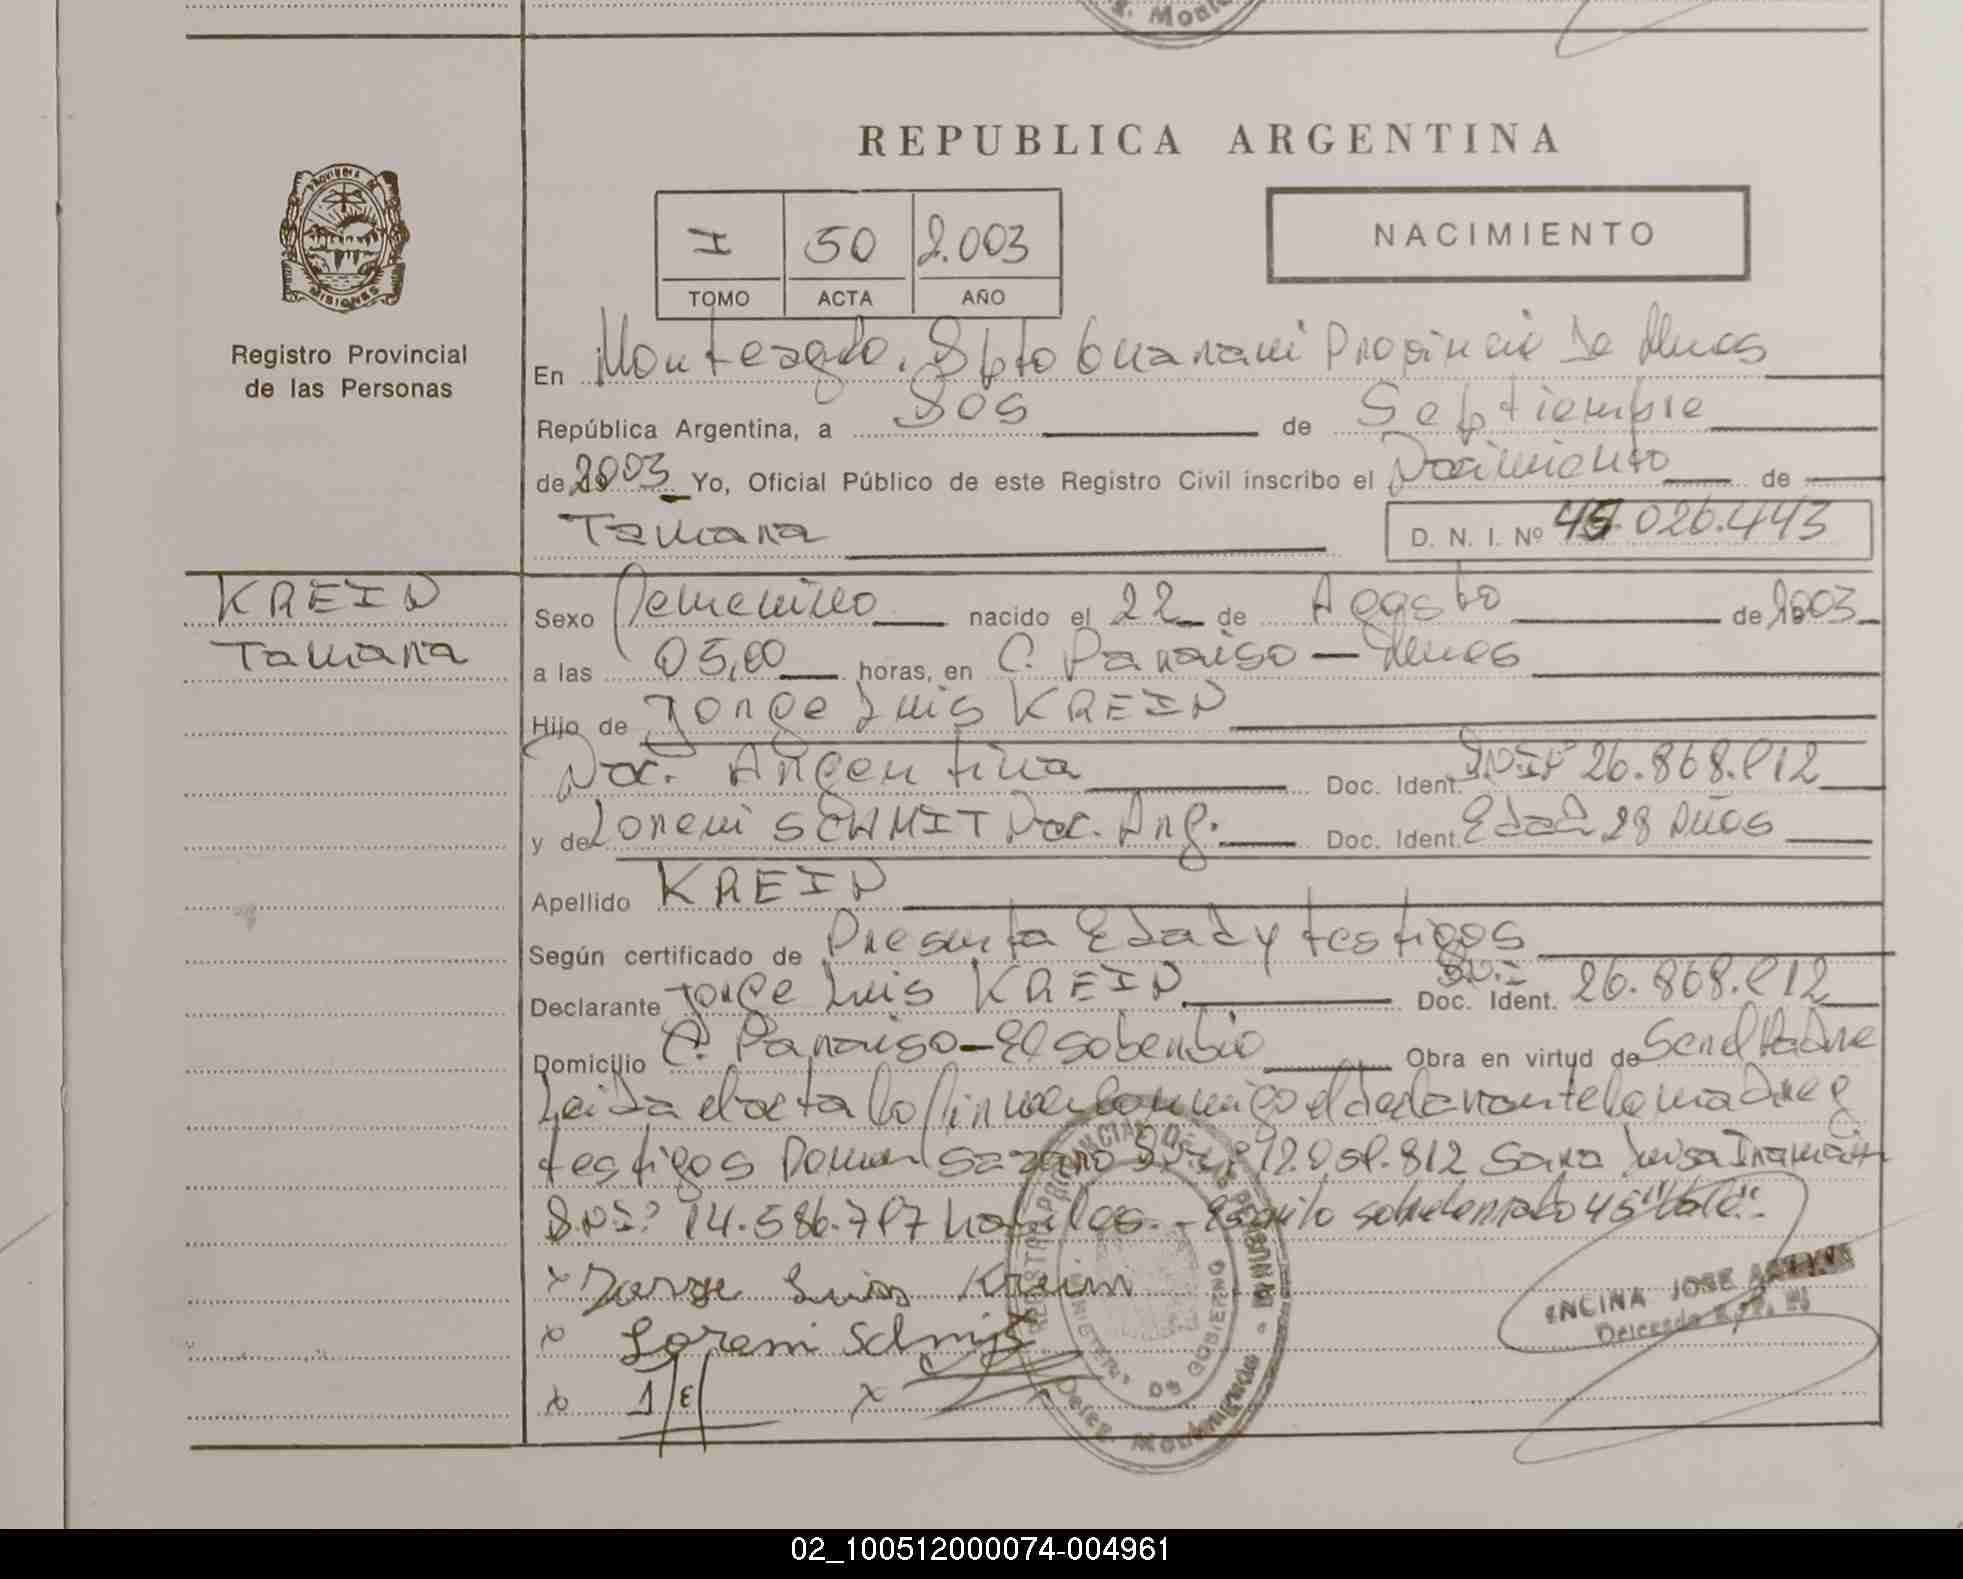 REPUBLICA ARGENTINA
PROVINCIA DE
MISIONES
Registro Provincial
de las Personas
I 50 2.003
TOMO ACTA AÑO
NACIMIENTO
En Monteagdo. Dpto Guarani Provincia De Mnes
República Argentina, a Dos de Septiembre
de 2003 Yo, Oficial Público de este Registro Civil inscribo el Nacimiento de
Tamara D. N. I. Nº 45.026.443
KREIN
Tamara
Sexo Femenino nacido el 22 de Agosto de 2003
a las 05,00 horas, en C. Paraiso - Mnes
Hijo de Jorge Luis KREIN
Nac. Argentina Doc. Ident. 26.868.912
y de Loreni SCHMIT Nac. Arg. Doc. Ident. Edad 28 Años
Apellido KREIN
Según certificado de Presunta Edad y testigos
Declarante Jorge Luis KREIN Doc. Ident. D.N.I 26.868.912
Domicilio C. Paraiso - El soberbio Obra en virtud de Ser el Padre
Leida el acta lo firman conmigo el declarante la madre y
testigos 812 Sara Luisa
D.N.I. 14.586.797 habiles. - Escrito sobreborrado 45 "Vale".-
x Jorge Luis Krein
x Loreni Schmit
x x
MINISTERIO DE GOBIERNO
Deleg. Monteagudo
ENCINA JOSE
Delegado
02_100512000074-004961